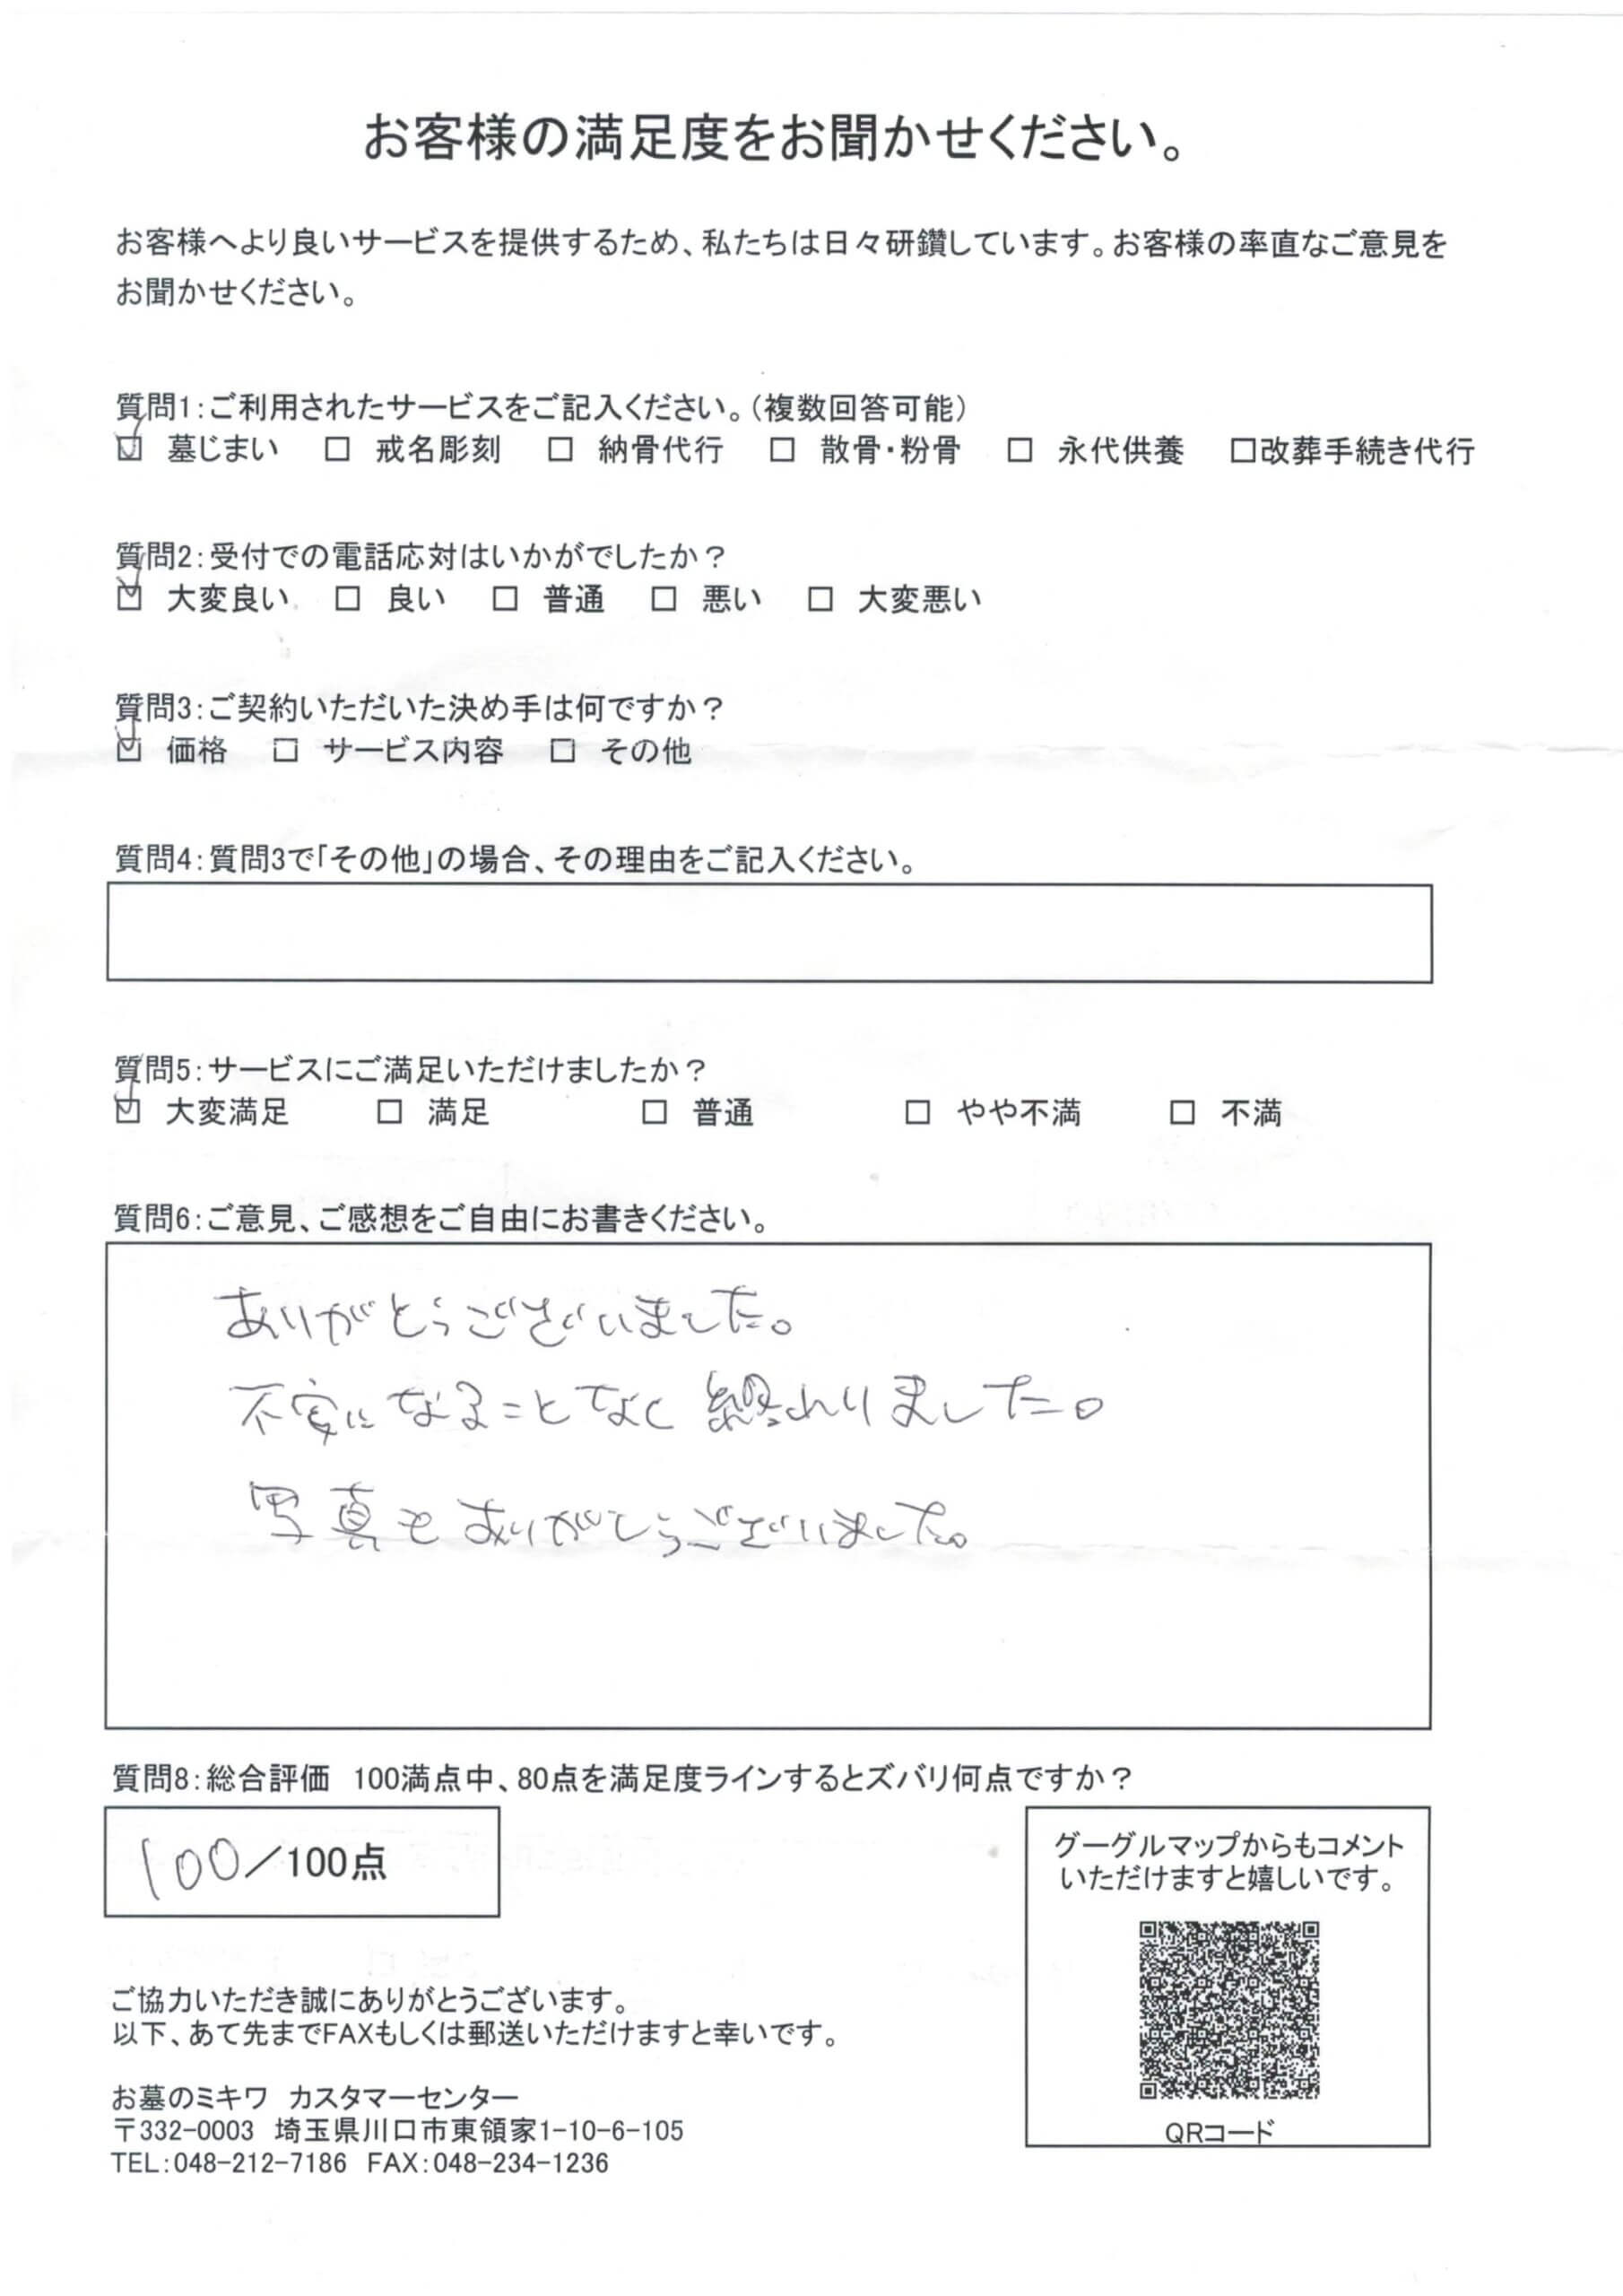 お客様の満足度をお聞かせください。
お客様へより良いサービスを提供するため、私たちは日々研鑽しています。お客様の率直なご意見を
お聞かせください。
質問1:ご利用されたサービスをご記入ください。(複数回答可能)
☑ 墓じまい □ 戒名彫刻 □ 納骨代行 □ 散骨・粉骨 □ 永代供養 □改葬手続き代行
質問2:受付での電話応対はいかがでしたか？
☑ 大変良い □ 良い □ 普通 □ 悪い □ 大変悪い
質問3:ご契約いただいた決め手は何ですか？
☑ 価格 □ サービス内容 □ その他
質問4:質問3で「その他」の場合、その理由をご記入ください。
質問5:サービスにご満足いただけましたか？
☑ 大変満足 □ 満足 □ 普通 □ やや不満 □ 不満
質問6:ご意見、ご感想をご自由にお書きください。
ありがとうございました。
不安になることなく終わりました。
写真もありがとうございました。
質問8:総合評価 100満点中、80点を満足度ラインするとズバリ何点ですか？
100／100点
グーグルマップからもコメント
いただけますと嬉しいです。
QRコード
ご協力いただき誠にありがとうございます。
以下、あて先までFAXもしくは郵送いただけますと幸いです。
お墓のミキワ カスタマーセンター
〒332-0003 埼玉県川口市東領家1-10-6-105
TEL:048-212-7186 FAX:048-234-1236